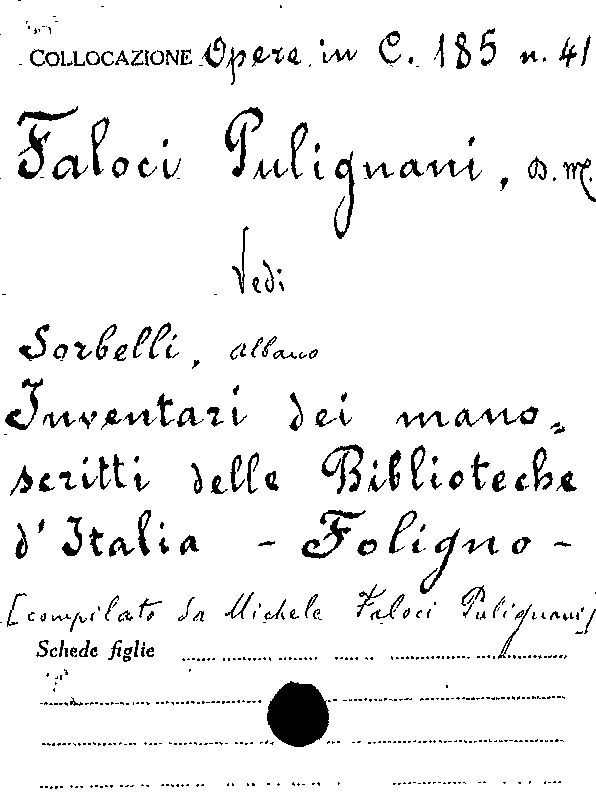 COLLOCAZIONE Opere in C. 185 n. 41
Faloci Pulignani, D. M.
Vedi
Sorbelli, Albano
Inventari dei mano=
scritti delle Biblioteche
d'Italia - Foligno -
[compilato da Michele Faloci Pulignani]
Schede figlie